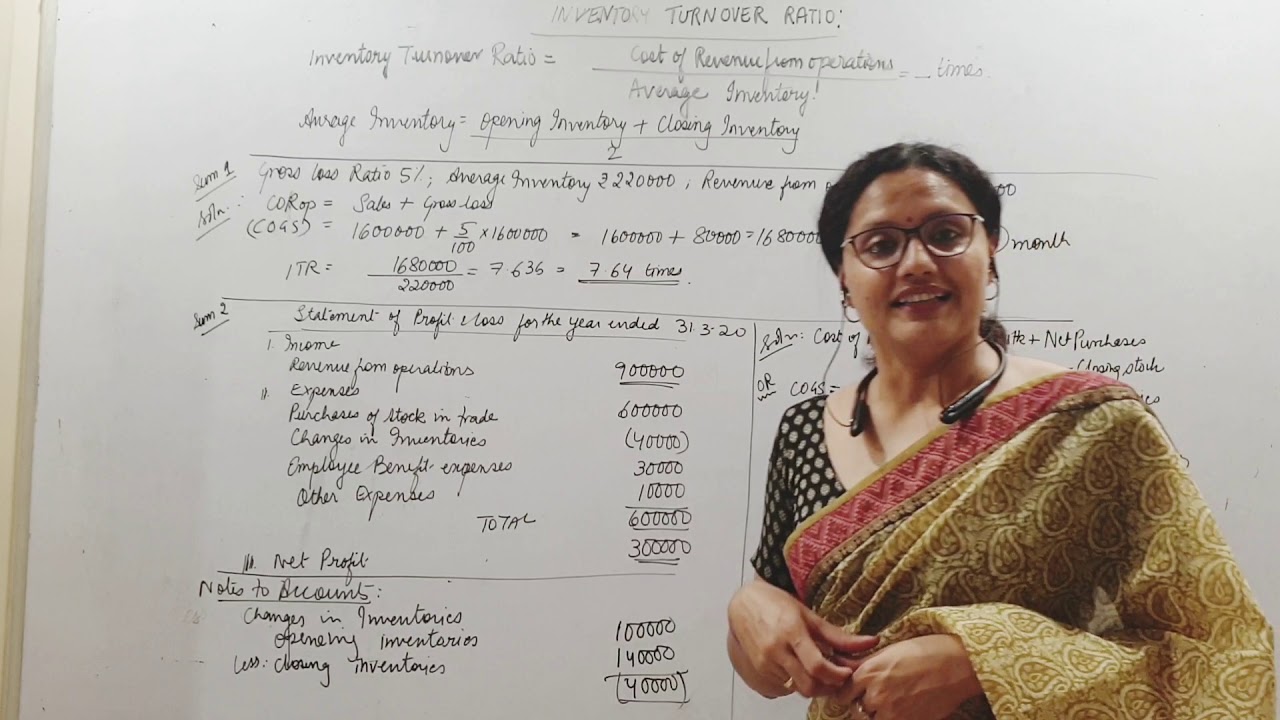 INVENTORY TURNOVER RATIO:
Inventory Turnover Ratio = Cost of Revenue from operations = _ times.
Average Inventory
Avrage Inventory = Opening Inventory + Closing Inventory
2
Sum 1 Gross loss Ratio 5%; Average Inventory ₹ 220000 ; Revenue from
Soln.: CORop = Sales + Gross loss
(COGS) = 1600000 + 5/100 × 1600000 = 1600000 + 80000 = 1680000
month
ITR = 1680000 = 7.636 = 7.64 times.
220000
Sum 2 Statement of Profit & loss for the year ended 31.3.20
I. Income
Revenue from operations 900000
II. Expenses
Purchases of stock in trade 600000
Changes in Inventories (40000)
Employee Benefit expenses 30000
Other Expenses 10000
TOTAL 600000
300000
III. Net Profit
Notes to Accounts:
Changes in Inventories
Opening inventories 100000
Less: Closing inventories 140000
(40000)
Soln: Cost of + Net Purchases
- Closing stock
OR COGS =